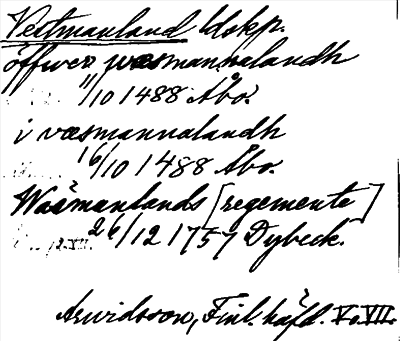 Vestmanland ldskp.
öffwer wæsmannalandh
11/10 1488 Åbo.
i væsmannalandh
16/10 1488 Åbo.
Wäsmanlands [regemente]
26/12 1757 Dybeck.
Arwidsson, Finl. häfd. V. VII.